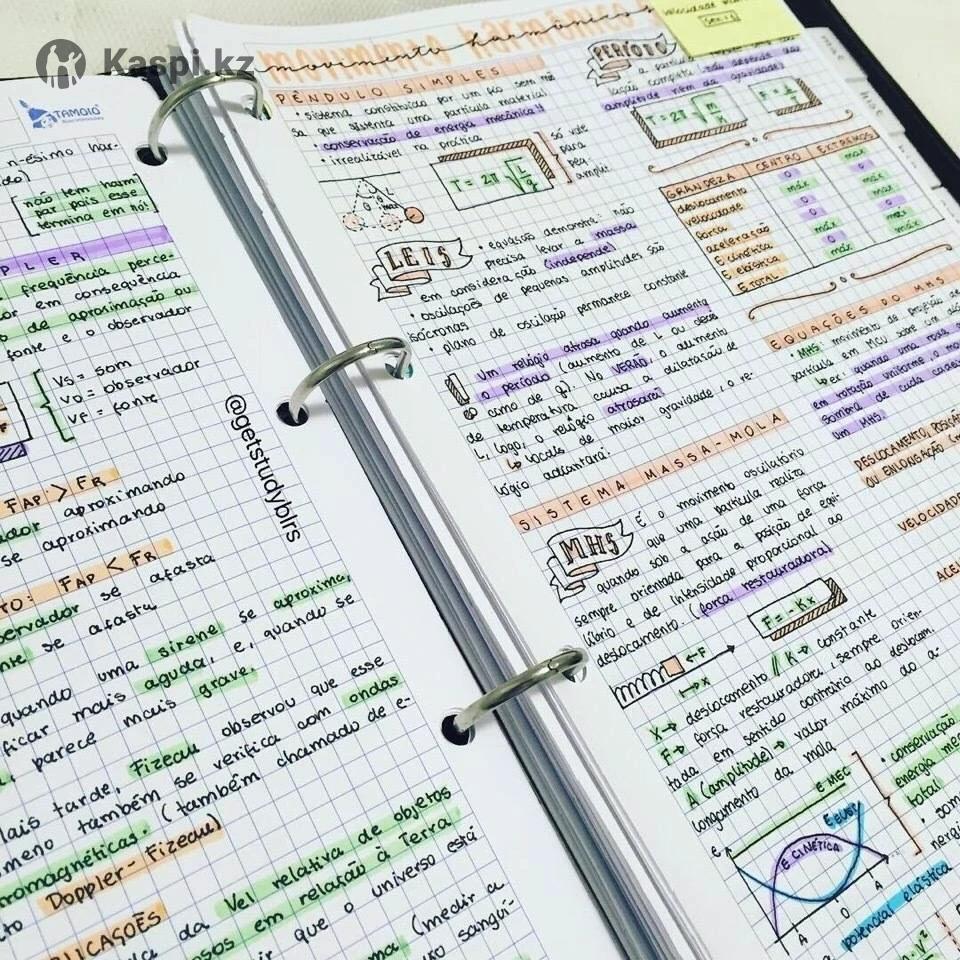 Kaspi.kz
TAMOIO
n-ésimo har-
não tem harm
par pois esse
termina em nó!
PLER
frequência perce-
or em consequência
de aproximação ou
fonte e o observador
Vs = som
Vo = observador
VF = fonte
FAP > FR
dor aproximando
se aproximando
TO: FAP < FR
servador se afasta
nte se afasta
quando uma sirene se aproxima,
ficar mais aguda, e, quando se
, parece mais grave.
ais tarde, Fizeau observou que esse
meno também se verifica com ondas
romagnéticas. (também chamado de e-
to Doppler-Fizeau)
LICAÇÕES
da Vel relativa de objetos
osos em relação à Terra,
ir que o universo está
(medir a
sanguí-
@getstudyblrs
movimento harmônico
movimento harmônico
PÊNDULO SIMPLES
• sistema constituído por um fio sem
sa que sustenta uma partícula material
• conservação de energia mecânica!
• irrealizável na prática
T = 2π √L/g
só vale
para
peq
amplit.
LEIS
• equação demonstra: não
precisa levar a massa
em consideração (independe)
• oscilações de pequenas amplitudes são
isócronas
• plano de oscilação permanece constante
Um relógio atrasa quando aumenta
o período (aumento de L ou decés
cimo de g). No VERÃO, o aumento
de temperatura causa a dilatação de
L, logo, o relógio atrasará.
↳ locais de maior gravidade, o re-
lógio adiantará.
SISTEMA MASSA-MOLA
MHS
É o movimento oscilatório
que uma partícula realiza
quando sob a ação de uma força
sempre orientada para a posição de equi-
líbrio e de intensidade proporcional ao
deslocamento. (força restauradora)
F = -Kx
←F
→x
X→ deslocamento // K→ constante
F→ força restauradora, sempre orien-
tada em sentido contrário ao deslocam.
A (amplitude) → valor máximo do a-
longamento da mola
E
E MEC
E ELÁST
E CINÉTICA
-A
0
A
• conservação
energia mec
total
potencial elástica
velocidade
PERÍODO
a partícul
lação completa (não depende da
amplitude nem da gravidade)
T = 2π √m/K
F = 1/T
GRANDEZA CENTRO EXTREMOS
deslocamento 0 máx
velocidade máx 0
força 0 máx
aceleração 0 máx
E cinética máx 0
E elástica 0 máx
E TOTAL máx máx
EQUAÇÕES DO MHS
• MHS: movimento de projeção de
partícula em MCU sobre um
↳ ex: quando uma roda
em rotação uniforme, o mo
sombra de cada
um MHS.
DESLOCAMENTO, POSIÇÃO
OU ENLONGAÇÃO
VELOCIDADE
ACEL